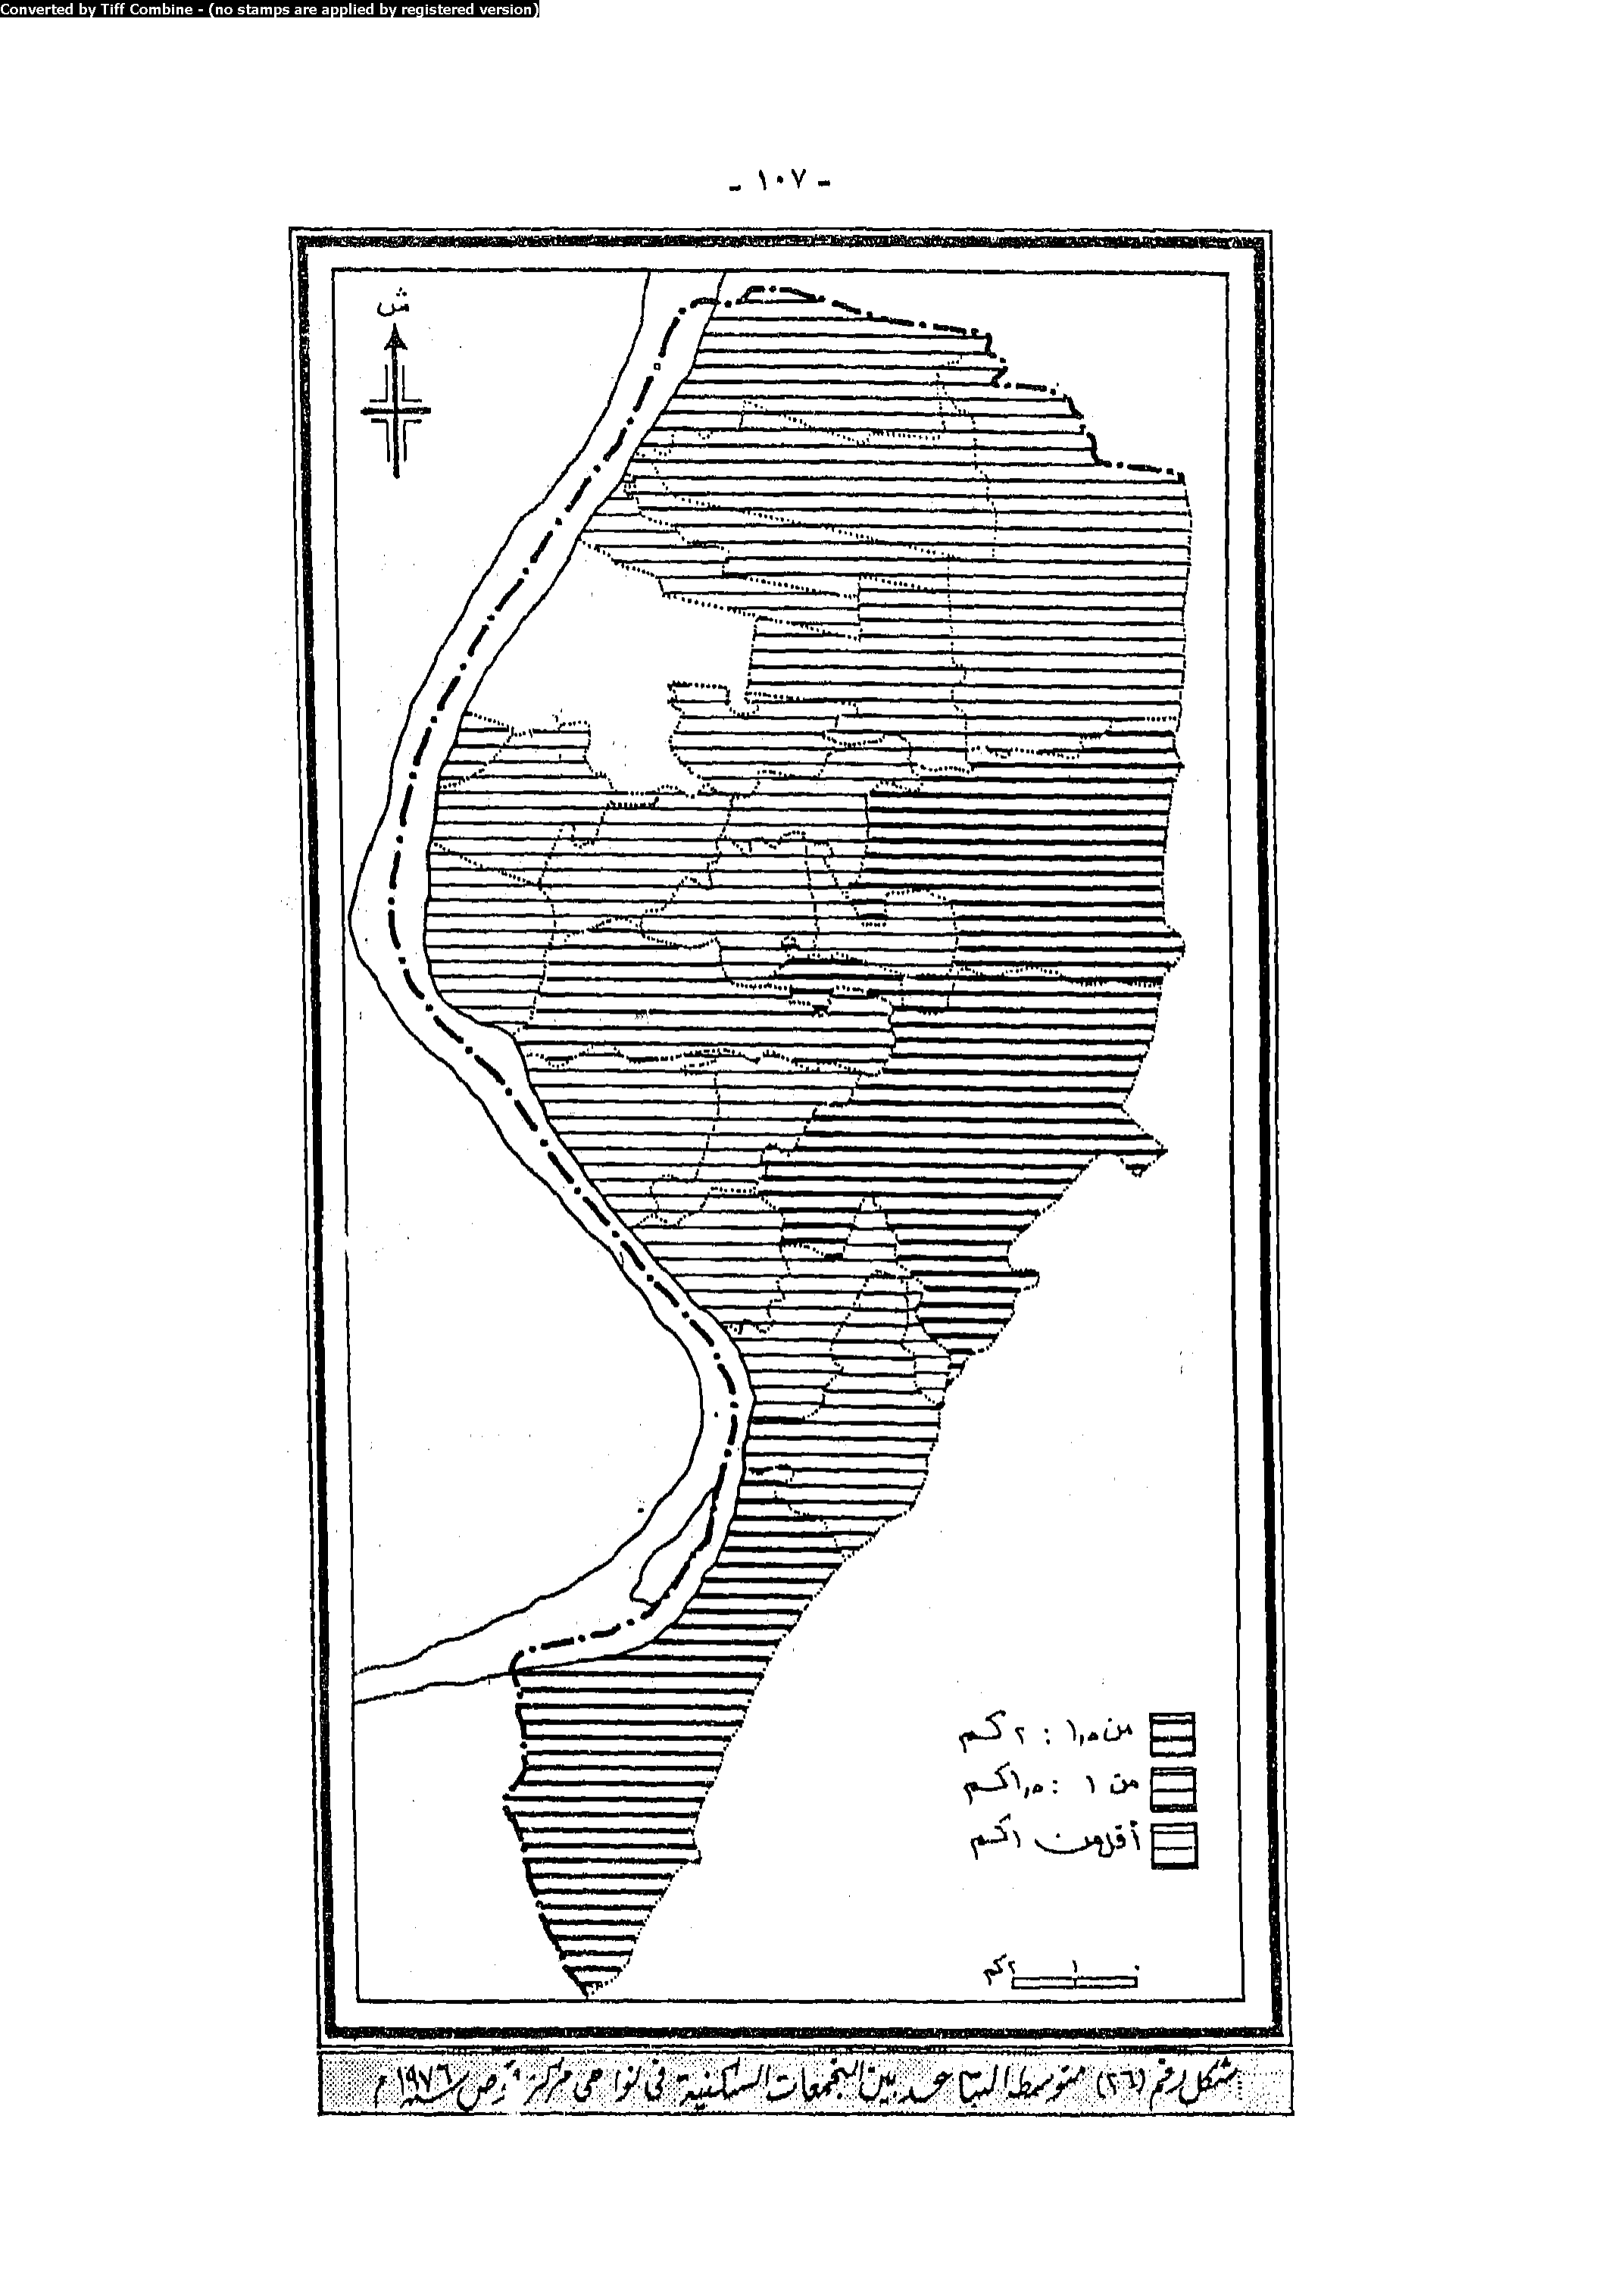 Converted by Tiff Combine - (no stamps are applied by registered version)
- ١٠٧ -
ش
من ١,٥ : ٢ كم
من ١ : ١,٥ كم
أقل من ١ كم
٠ ١ ٢ كم
شكل رقم (٢٦) متوسط التباعد بين التجمعات السكنية في نواحي مركز قوص سنة ١٩٧٦ م